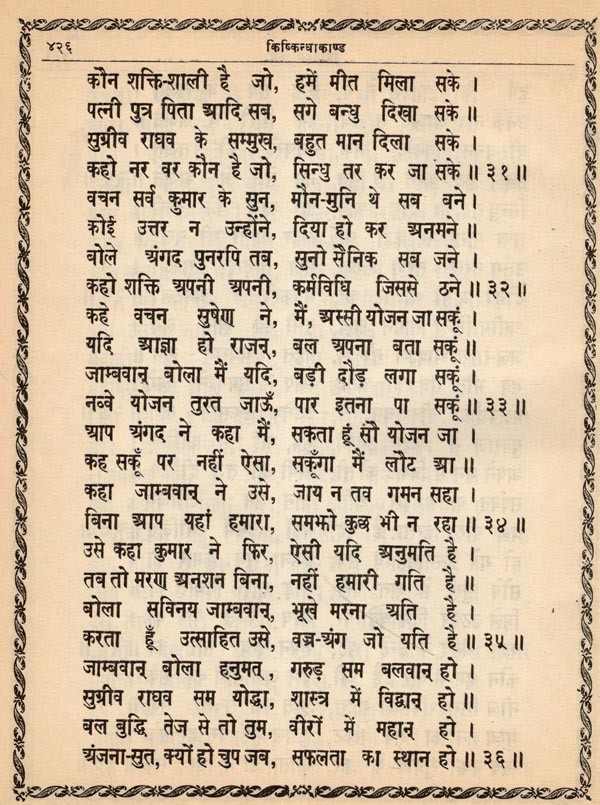 ४२६ किष्किन्धाकाण्ड
कौन शक्ति-शाली है जो, हमें मीत मिला सके ।
पत्नी पुत्र पिता आदि सब, सगे बन्धु दिखा सके ॥
सुग्रीव राघव के सम्मुख, बहुत मान दिला सके ।
कहो नर वर कौन है जो, सिन्धु तर कर जा सके ॥ ३१ ॥
वचन सर्व कुमार के सुन, मौन-मुनि थे सब बने ।
कोई उत्तर न उन्होंने, दिया हो कर अनमने ॥
बोले अंगद पुनरपि तब, सुनो सैनिक सब जने ।
कहो शक्ति अपनी अपनी, कर्मविधि जिससे ठने ॥ ३२ ॥
कहे वचन सुषेण ने, मैं, अस्सी योजन जा सकूं ।
यदि आज्ञा हो राजन्, बल अपना बता सकूं ॥
जाम्बवान् बोला मैं यदि, बड़ी दौड़ लगा सकूं ।
नव्वे योजन तुरत जाऊँ, पार इतना पा सकूं ॥ ३३ ॥
आप अंगद ने कहा मैं, सकता हूं सौ योजन जा ।
कह सकूँ पर नहीं ऐसा, सकूँगा मैं लौट आ ॥
कहा जाम्बवान् ने उसे, जाय न तव गमन सहा ।
बिना आप यहां हमारा, समझो कुछ भी न रहा ॥ ३४ ॥
उसे कहा कुमार ने फिर, ऐसी यदि अनुमति है ।
तब तो मरण अनशन बिना, नहीं हमारी गति है ॥
बोला सविनय जाम्बवान्, भूखे मरना अति है ।
करता हूँ उत्साहित उसे, वज्र-अंग जो यति है ॥ ३५ ॥
जाम्बवान् बोला हनुमत्, गरुड़ सम बलवान् हो ।
सुग्रीव राघव सम योद्धा, शास्त्र में विद्वान् हो ॥
बल बुद्धि तेज से तो तुम, वीरों में महान् हो ।
अंजना-सुत, क्यों हो चुप जब, सफलता का स्थान हो ॥ ३६ ॥